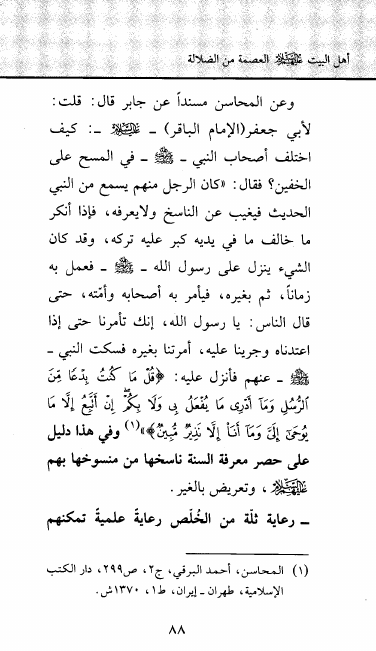 أهل البيت عليهم السلام العصمة من الضلالة
وعن المحاسن مسنداً عن جابر قال: قلت:
لأبي جعفر(الإمام الباقر) ـ عليه السلام ـ: كيف
اختلف أصحاب النبي ـ ﷺ ـ في المسح على
الخفين؟ فقال: «كان الرجل منهم يسمع من النبي
الحديث فيغيب عن الناسخ ولايعرفه، فإذا أنكر
ما خالف ما في يديه كبر عليه تركه، وقد كان
الشيء ينزل على رسول الله ـ ﷺ ـ فعمل به
زماناً، ثم بغيره، فيأمر به أصحابه وأمّته، حتى
قال الناس: يا رسول الله، إنك تأمرنا حتى إذا
اعتدناه وجرينا عليه، أمرتنا بغيره فسكت النبي ـ
ﷺ ـ عنهم فأنزل عليه: ﴿قُلْ مَا كُنتُ بِدْعًا مِّنَ
ٱلرُّسُلِ وَمَآ أَدْرِى مَا يُفْعَلُ بِى وَلَا بِكُمْ ۖ إِنْ أَتَّبِعُ إِلَّا مَا
يُوحَىٰٓ إِلَىَّ وَمَآ أَنَا۠ إِلَّا نَذِيرٌ مُّبِينٌ﴾»(١) وفي هذا دليل
على حصر معرفة السنة ناسخها من منسوخها بهم
عليهم السلام، وتعريض بالغير.
ـ رعاية ثلّة من الخُلّص رعايةً علميةً تمكنهم
(١) المحاسن، أحمد البرقي، ج٢، ص٢٩٩، دار الكتب
الإسلامية، طهران ـ إيران، ط١، ١٣٧٠ش.
٨٨